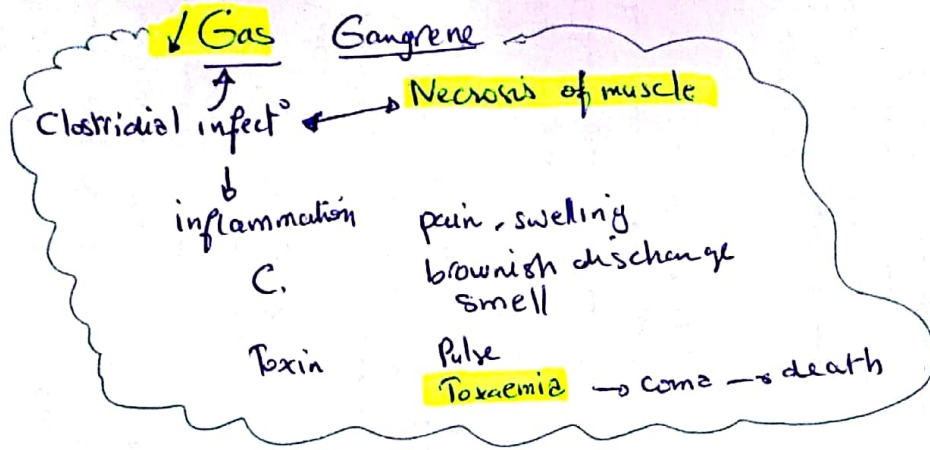 Gas Gangrene
Clostridial infect° Necrosis of muscle
inflammation pain, swelling
C. brownish discharge
smell
Toxin Pulse
Toxaemia → coma → death